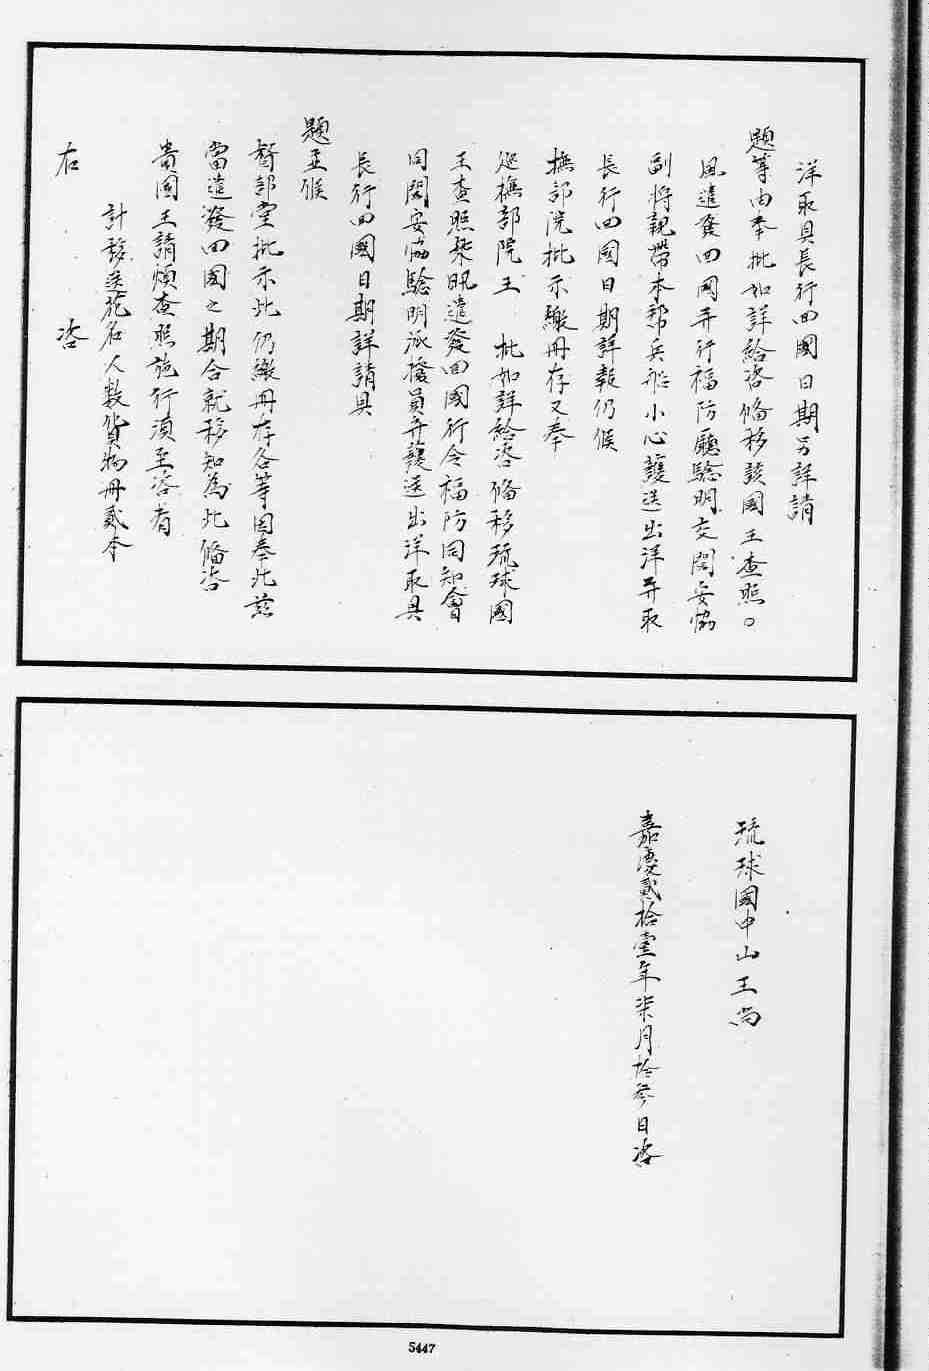 洋取具長行回國日期另詳請
題等由奉批如詳給咨備移該國王查照。
風遣發回國并行福防廳驗明交閩安協
副將親帶本幇兵船小心護送出洋并取
長行回國日期詳報仍候
撫部院批示繳冊存又奉
巡撫部院王 批如詳給咨備移琉球國
王查照乘汛遣發回國行令福防同知會
同閩安協驗明派撥員弁護送出洋取具
長行回國日期詳請具
題並候
督部堂批示此仍繳冊存各等因奉此茲
當遣發回國之期合就移知為此備咨
貴國王請煩查照施行須至咨者
計移送花名人數貨物冊貳本
右 咨
琉球國中山王尚
嘉慶貳拾壹年柒月拾參日咨
5447